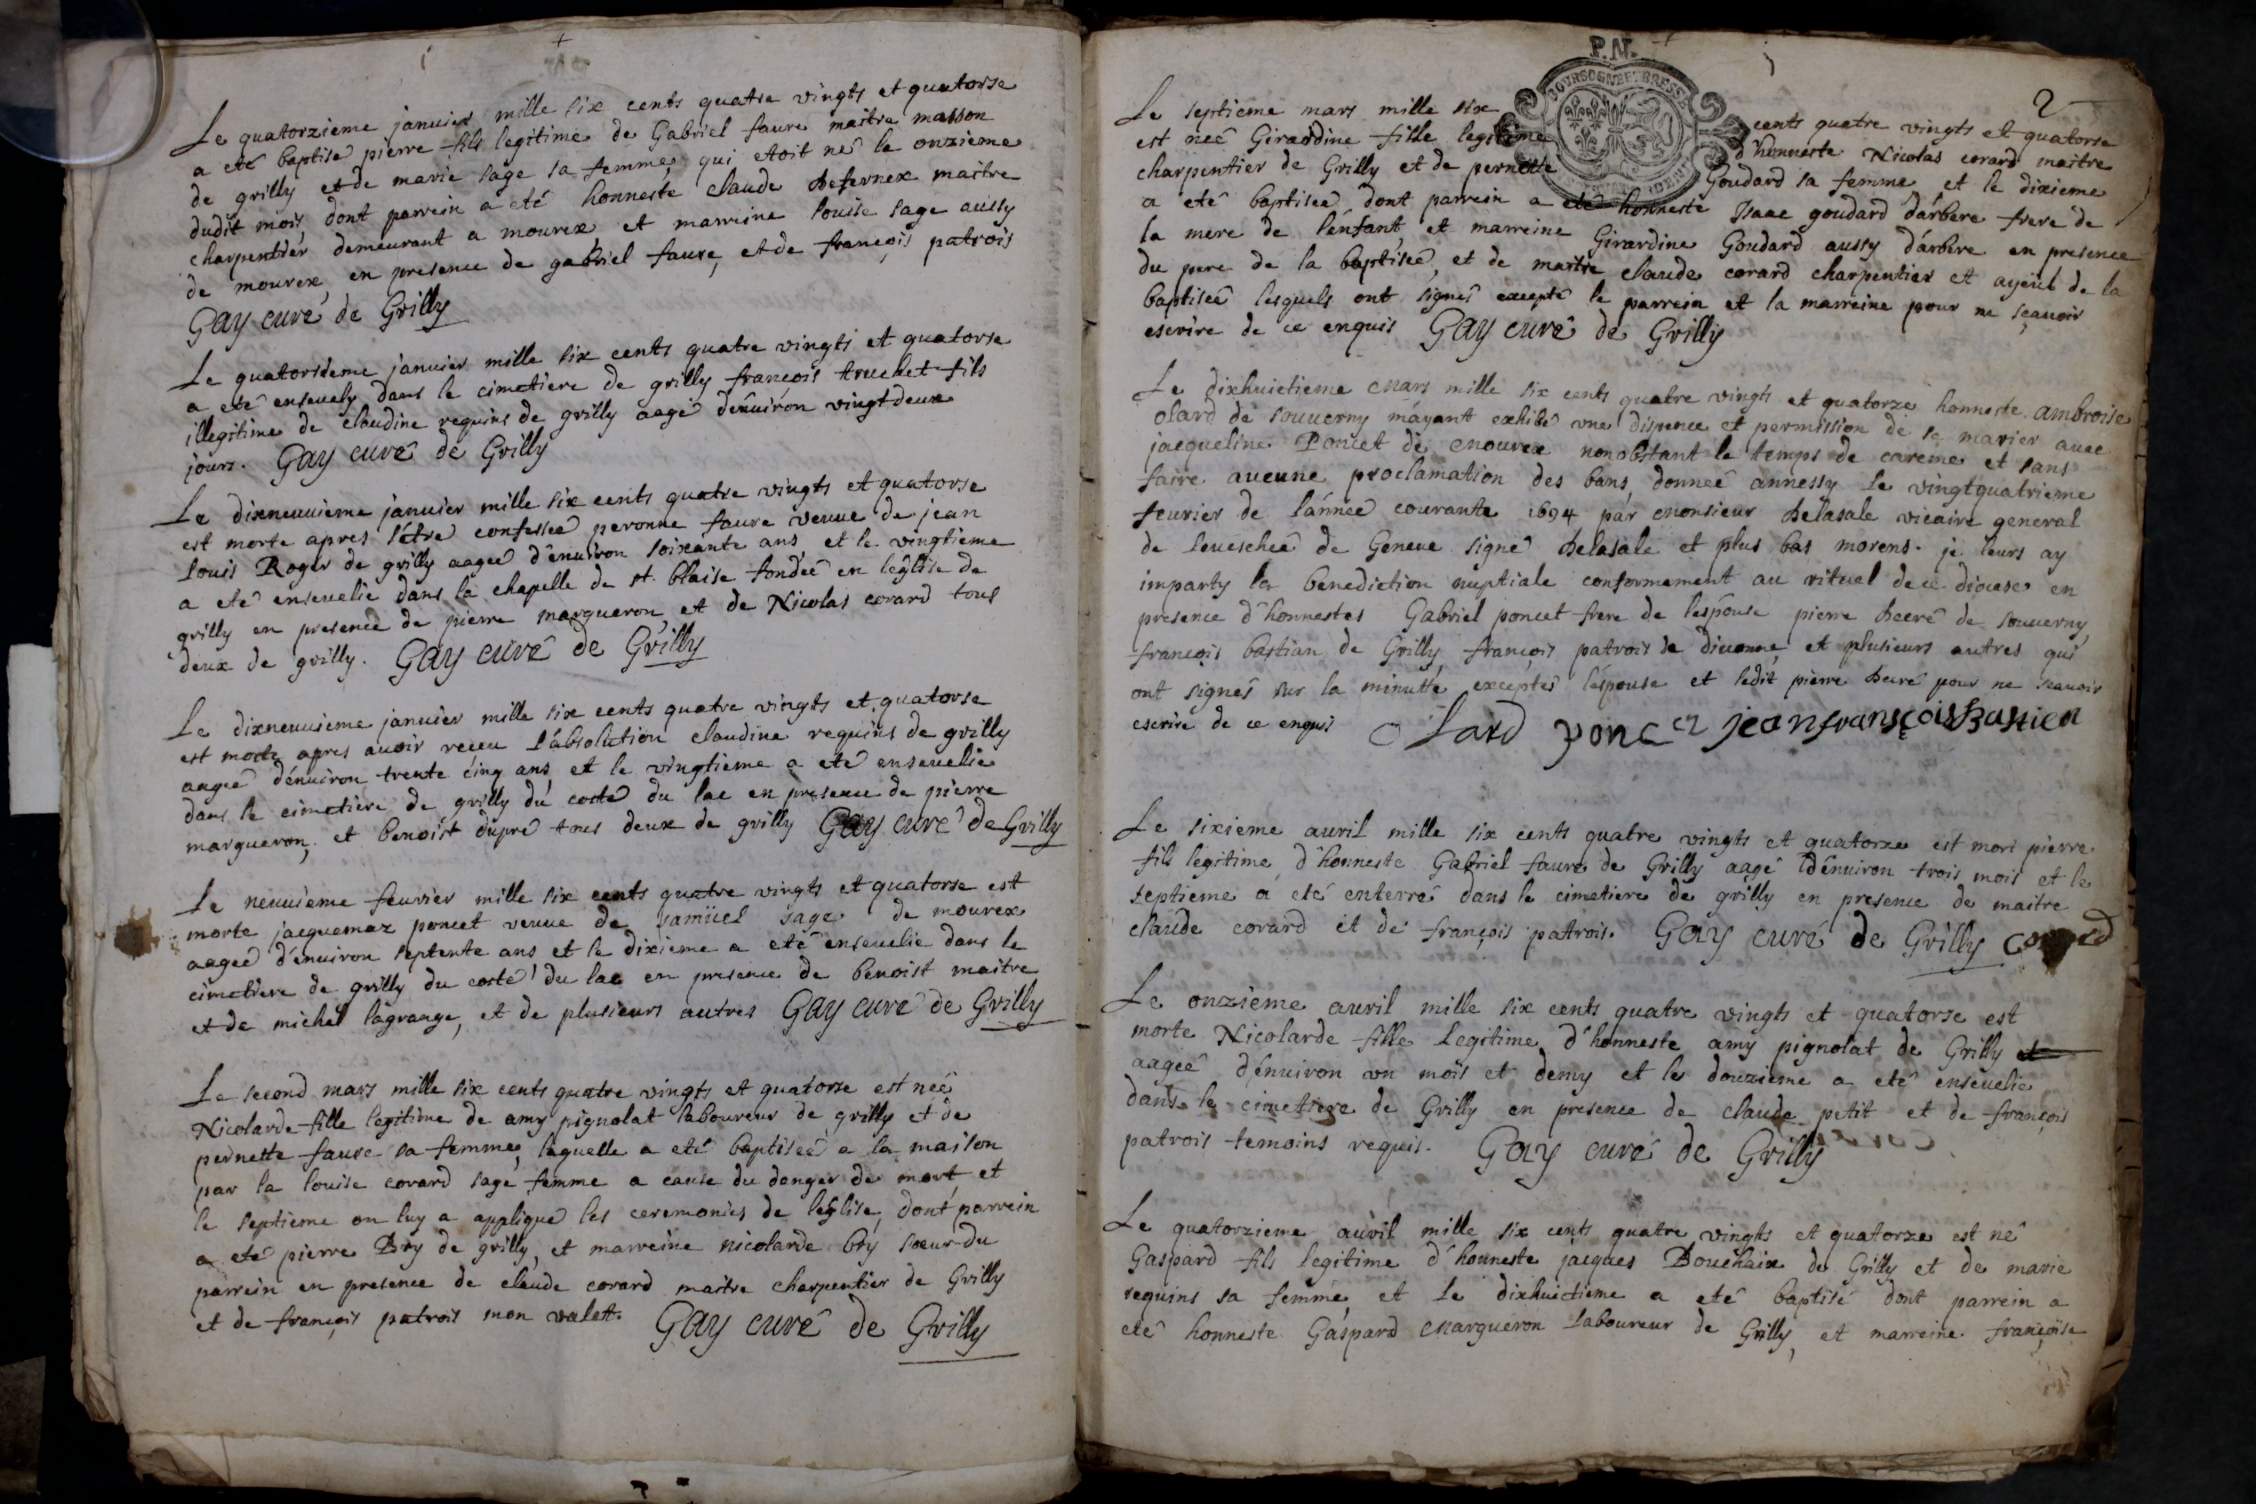 Le quatorzieme januier mille six cents quatre vingts et quatorse
a eté baptisé pierre fils legitime de Gabriel faure maitre masson
de grilly et de marie sage sa femme, qui etoit né le onzieme
dudit mois, dont parrein a eté honneste claude defernex maitre
charpentier demeurant a mourex, et marreine louise sage aussy
de mourex, en presence de gabriel faure, et de françois patrois
Gay curé de Grilly
Le quatorsieme januier mille six cents quatre vingts et quatorse
a eté enseuely dans le cimetiere de grilly françois truchet fils
illegitime de claudine requins de grilly aagé d'enuiron vingt deux
jours. Gay curé de Grilly
Le dixneuuieme januier mille six cents quatre vingts et quatorse
est morte apres s'etre confessee peronne faure veuue de jean
louis Roger de grilly aagee d'enuiron soixante ans, et le vingtieme
a eté enseuelie dans la chapelle de st. blaise fondeê en l'eglise de
grilly en presence de pierre margueron, et de Nicolas corard tous
deux de grilly. Gay curé de Grilly
Le dixneuuieme januier mille six cents quatre vingts et quatorse
est morte apres auoir receu l'absolution claudine requins de grilly
aageé d'enuiron trente cinq ans, et le vingtieme a eté enseuelie
dans le cimetiere de grilly du costé du lac en presence de pierre
margueron, et benoist dupré tous deux de grilly Gay curé de Grilly
Le neuuieme feurier mille six cents quatre vingts et quatorse est
morte jacquemaz poncet veuue de samüel sage de mourex
aageé d'enuiron septente ans et le dixieme a eté enseuelie dans le
cimetiere de grilly du costé du lac en presence de benoist maitre
et de michel lagrange, et de plusieurs autres Gay curé de Grilly
Le second mars mille six cents quatre vingts et quatorse est neé
Nicolarde fille legitime de amy pignolat laboureur de grilly et de
pernette faure sa femme, laquelle a eté baptiseé a la maison
par la louise corard sage femme a cause du danger de mort, et
le septieme on luy a appliqué les ceremonies de l'eglise, dont parrein
a eté pierre Bry de grilly, et marreine nicolarde bry soeur du
parrein en presence de claude corard maitre charpentier de Grilly
et de françois patrois mon valett. Gay curé de Grilly
P.M.
BOURGOGNE ET BRESSE
2
Le septieme mars mille six cents quatre vingts et quatorse
est neê Girardine fille legitime d'honneste Nicolas corard maitre
charpentier de Grilly et de pernette Goudard sa femme et le dixieme
a eté baptiseé, dont parrein a eté honneste Isaac goudard d'arbere frere de
la mere de l'enfant, et marreine Girardine Goudard aussy d'arbere en presence
du pere de la baptiseé, et de maitre claude corard charpentier et ayeul de la
baptiseé lesquels ont signés excepté le parrein et la marreine pour ne sçauoir
escrire de ce enquis Gay curé de Grilly
Le dixhuictieme mars mille six cents quatre vingts et quatorze honneste ambroise
olard de souuerny m'ayant exhibé vne dispence et permission de se marier auec
jacqueline Poncet de mourex nonobstant le temps de careme et sans
faire aucune proclamation des bans, donneê annessy le vingtquatrieme
feurier de l'anneé courante 1694 par monsieur delasale vicaire general
de l'euescheé de Geneue signé delasale et plus bas morens. je leurs ay
imparty la benediction nuptiale conformement au rituel de ce diocese en
presence d'honnestes Gabriel poncet frere de l'espouse pierre decré de souuerny,
françois bastian de Grilly, françois patrois de diuonne, et plusieurs autres qui
ont signés sur la minutte exceptés l'espouse et ledit pierre decré pour ne sçauoir
escrire de ce enquis Olard poncet jeanfransçois Bastien
Le sixieme auril mille six cents quatre vingts et quatorze est mort pierre
fils legitime d'honneste Gabriel faure de Grilly aagé d'enuiron trois mois et le
septieme a eté enterré dans le cimetiere de grilly en presence de maitre
claude corard et de françois pattrois. Gay curé de Grilly corard
Le onzieme auril mille six cents quatre vingts et quatorse est
morte Nicolarde fille Legitime d'honneste amy pignolat de Grilly et
aageé d'enuiron vn mois et demy et le douzieme a eté enseuelie
dans le cimetiere de Grilly en presence de claude petit et de françois
patrois temoins requis. Gay curé de Grilly
Le quatorzieme auril mille six cents quatre vingts et quatorze est né
Gaspard fils legitime d'honneste jacques Bouchaix de Grilly et de marie
requins sa femme, et le dixhuictieme a eté baptisé dont parrein a
eté honneste Gaspard margueron laboureur de Grilly, et marreine françoise